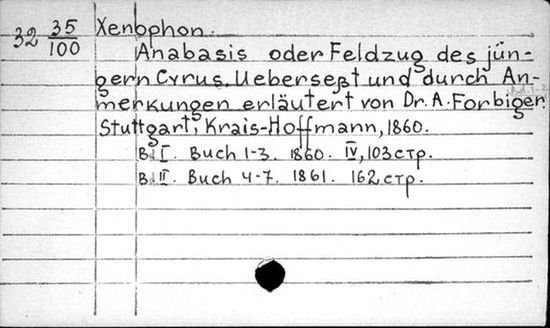 32 35/100 Xenophon.
Anabasis oder Feldzug des jün-
gern Cyrus. Ueberseßt und durch An-
merkungen erläutert von Dr. A. Forbiger.
Stuttgart, Krais-Hoffmann, 1860.
Bd I. Buch 1-3. 1860. IV, 103 стр.
Bd II. Buch 4-7. 1861. 162 стр.